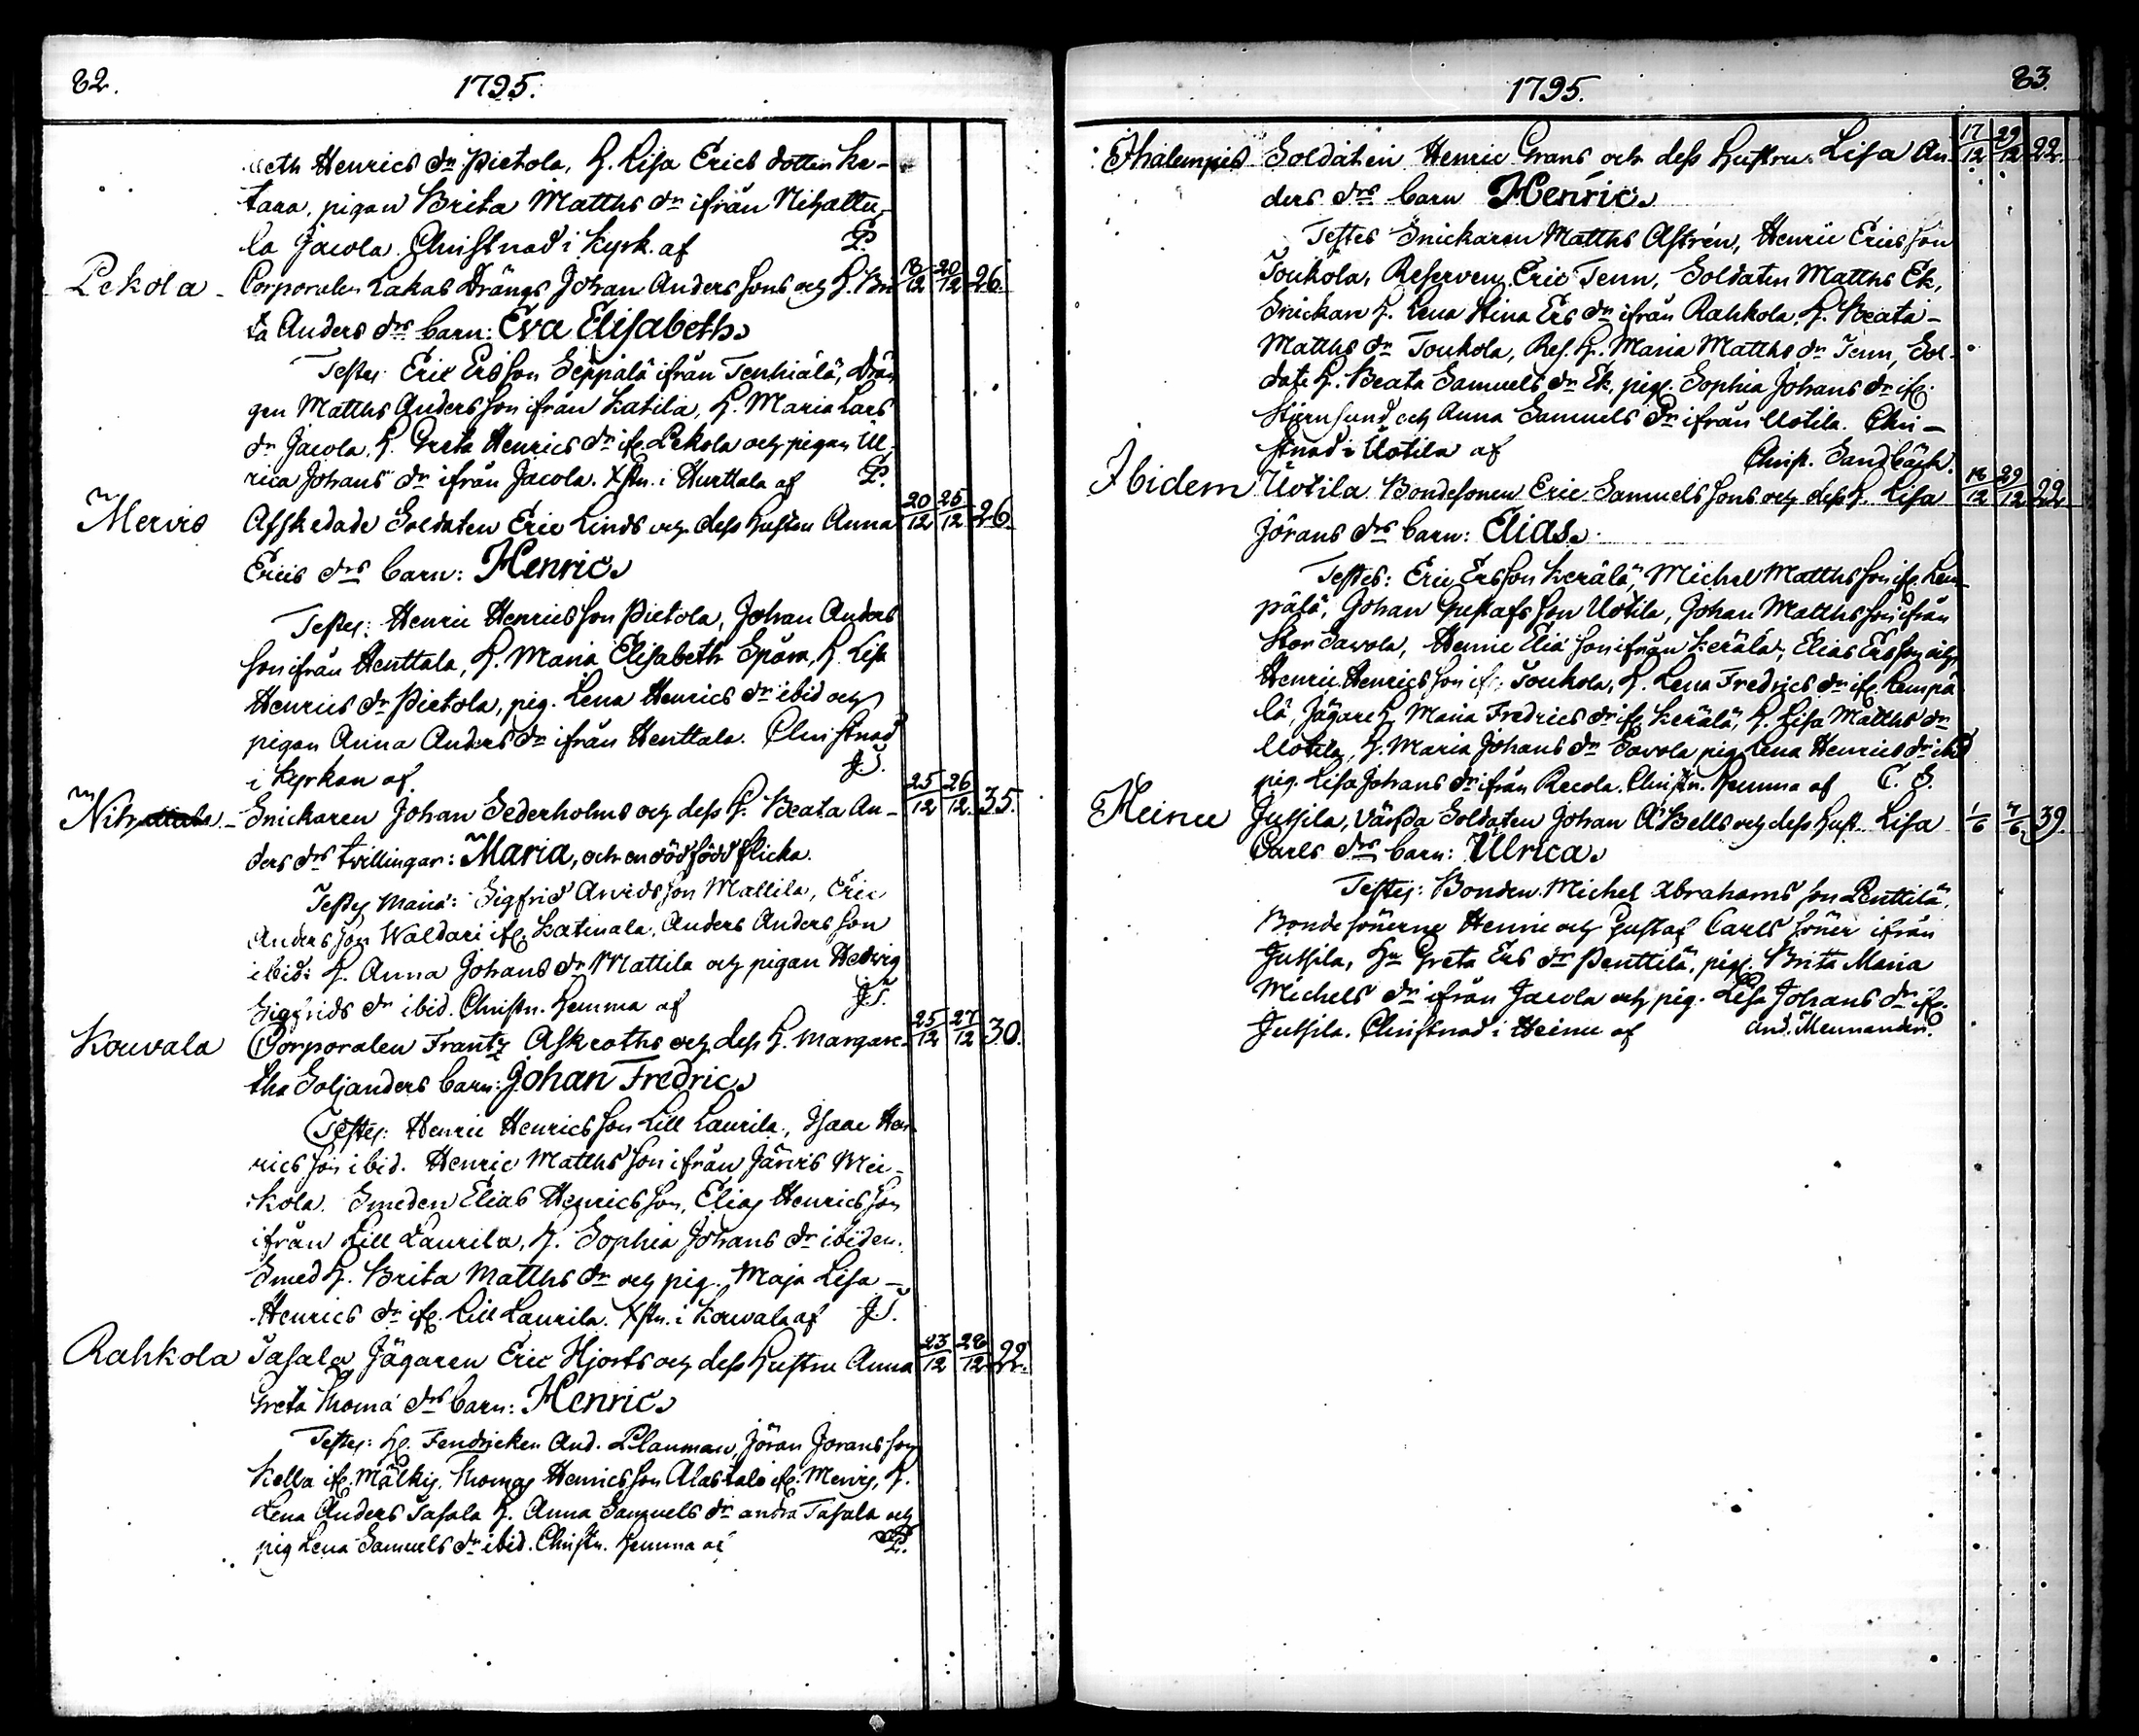 82.
1795.
beth Henrics dr Pietola, H. Lisa Erics dotter Ka-
tara, pigan Brita Matths dr ifrån Nihattu-
la Jacola. Christnad i kyrk. af P.
Pekola - Corporalen Lakas Drängs Johan Anders sons och H. Bri- 18/12 20/12 26.
ta Anders drs barn: Eva Elisabeth.
Testes: Eric Ersson Seppälä ifrån Tenhiälä, Drän
gen Matths Andersson ifrån Katila, H. Maria Lars
dr Jacola, H. Greta Henrics dr ifr. Pekola och pigan Ul-
rica Johans dr ifrån Jacola. Xstn. i Hurttala af P.
Mervis Afskedade Soldaten Eric Linds och dess hustru Anna 20/12 25/12 26.
Erics drs barn: Henric.
Testes: Henric Henricsson Pietola, Johan Anders
son ifrån Henttala, H. Maria Elisabeth Spåra, H. Lisa
Henrics dr Pietola, pig. Lena Henrics dr ibid och
pigan Anna Anders dr ifrån Henttala. Christnad
i Kyrkan af J.T.
Nih - Snickaren Johan Sederholms och dess H. Beata An- 25/12 26/12 35.
ders drs tvillingar: Maria, och en död född flicka.
Testes Maria: Sigfrid Arvidsson Mattila, Eric
Andersson Waldari ifr. Katinala, Anders Andersson
ibid: H. Anna Johans dr Mattila och pigan Hedvig
Sigfrids dr ibid. Christn. hemma af J.T.
Kouvala Corporalen Frantz Askroths och dess H. Margare- 25/12 27/12 30.
tha Soljanders barn: Johan Fredric.
Testes: Henric Henricsson Lill Laurila, Isaac Hen
ricsson ibid. Henric Matthsson ifrån Järvis Mic-
kola. Smeden Elias Henricsson, Elias Henricsson
ifrån Lill Laurila, H. Sophia Johans dr ibidem.
Smed H. Brita Matths dr och pig. Maja Lisa
Henrics dr ifr. Lill Laurila. Xstn. i Kouvala af J.T.
Rahkola Tasala Jägaren Eric Hjorts och dess hustru Anna 23/12 28/12 22.
Greta Thoma drs barn: Henric.
Testes: Hr. Fendricken And. Planman, Jöran Joransson
Kella ifr. Mälkis, Thomas Henricsson Alastalo ifr. Mervis, H.
Lena Anders Tasala H. Anna Samuels dr andra Tasala och
pig Lena Samuels dr ibid. Christn. hemma af P.
1795.
83.
Thalempis Soldaten Henric Grans och dess hustrus Lisa An- 17/12 29/12 22.
ders drs barn Henric.
Testes Snickaren Matths Astrén, Henric Ericsson
Toukola, Reserven Eric Tenn, Soldaten Matths Ek,
Snickare H. Lena Stina Ers dr ifrån Rahkola, H. Beata
Matths dr Toukola, Res. H. Maria Matths dr Tenn, Sol-
date H. Beata Samuels dr Ek, pig. Sophia Johans dr ifr.
Stjernsund och Anna Samuels dr ifrån Uotila. Chri-
stnad i Uotila af Christ. Sandbäck.
Ibidem Uotila Bondesonen Eric Samuelssons och dess H. Lisa 18/12 29/12 22.
Jörans drs barn: Elias.
Testes: Eric Ersson Kerälä, Michel Matthsson ifr. Lem-
pälä, Johan Gustafsson Uotila, Johan Matthsson ifrån
Stor Sawola, Henric Elia son ifrån Kerälä, Elias Ersson och
Henric Henricsson ifr. Toukola, H. Lena Fredrics dr ifr. Lempä
lä, Jägare H. Maria Fredrics dr ifr. Kerälä, H. Lisa Matths dr
Uotila, H. Maria Johans dr Savola pig Lena Henrics dr ibid
pig. Lisa Johans dr ifrån Recola. Christn. hemma af C. S.
Heinu Jutsila, Värfda Soldaten Johan A'Bells och dess Hust. Lisa 1/6 7/6 39.
Carls drs barn: Ulrica.
Testes: Bonden Michel Abrahamsson Penttilä,
Bondesönerne Henric och Gustaf Carls söner ifrån
Jutsila, Hu Greta Ers dr Penttilä, pig. Brita Maria
Michels dr ifrån Jacola och pig. Lisa Johans dr ifr.
Jutsila. Christnad i Heinu af And. Mennander.